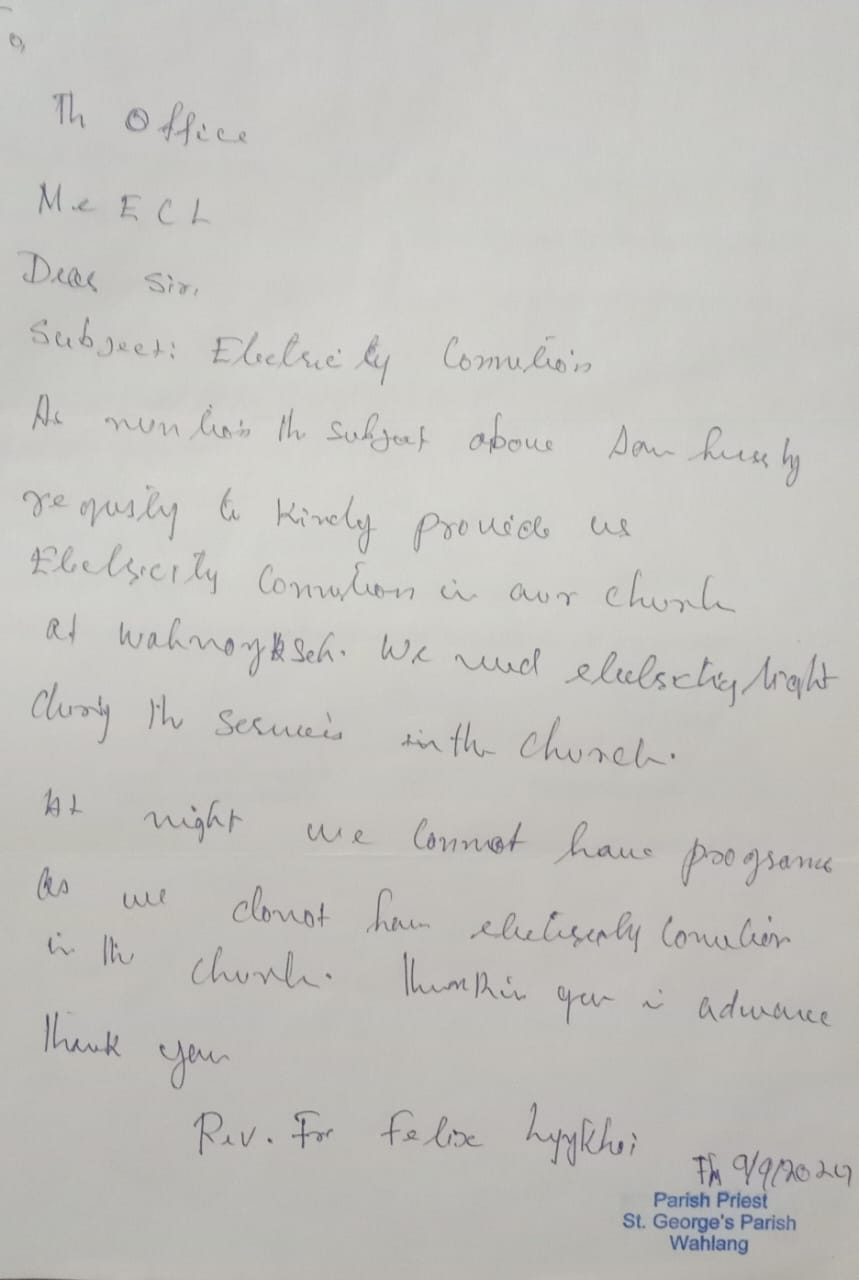 To,
Th Office
Me ECL
Dear Sir,
Subject: Electricity Connection
As mention th subject above I am humbly
requstly to kindly provide us
Electricity Connection in our church
at We need electricity light
during th services in the church.
At night we cannot have programe
as we donot have electricity connection
in th church. Thanking you in advance
Thank you
Rev. Fr Felix
9/9/2024
Parish Priest
St. George's Parish
Wahlang